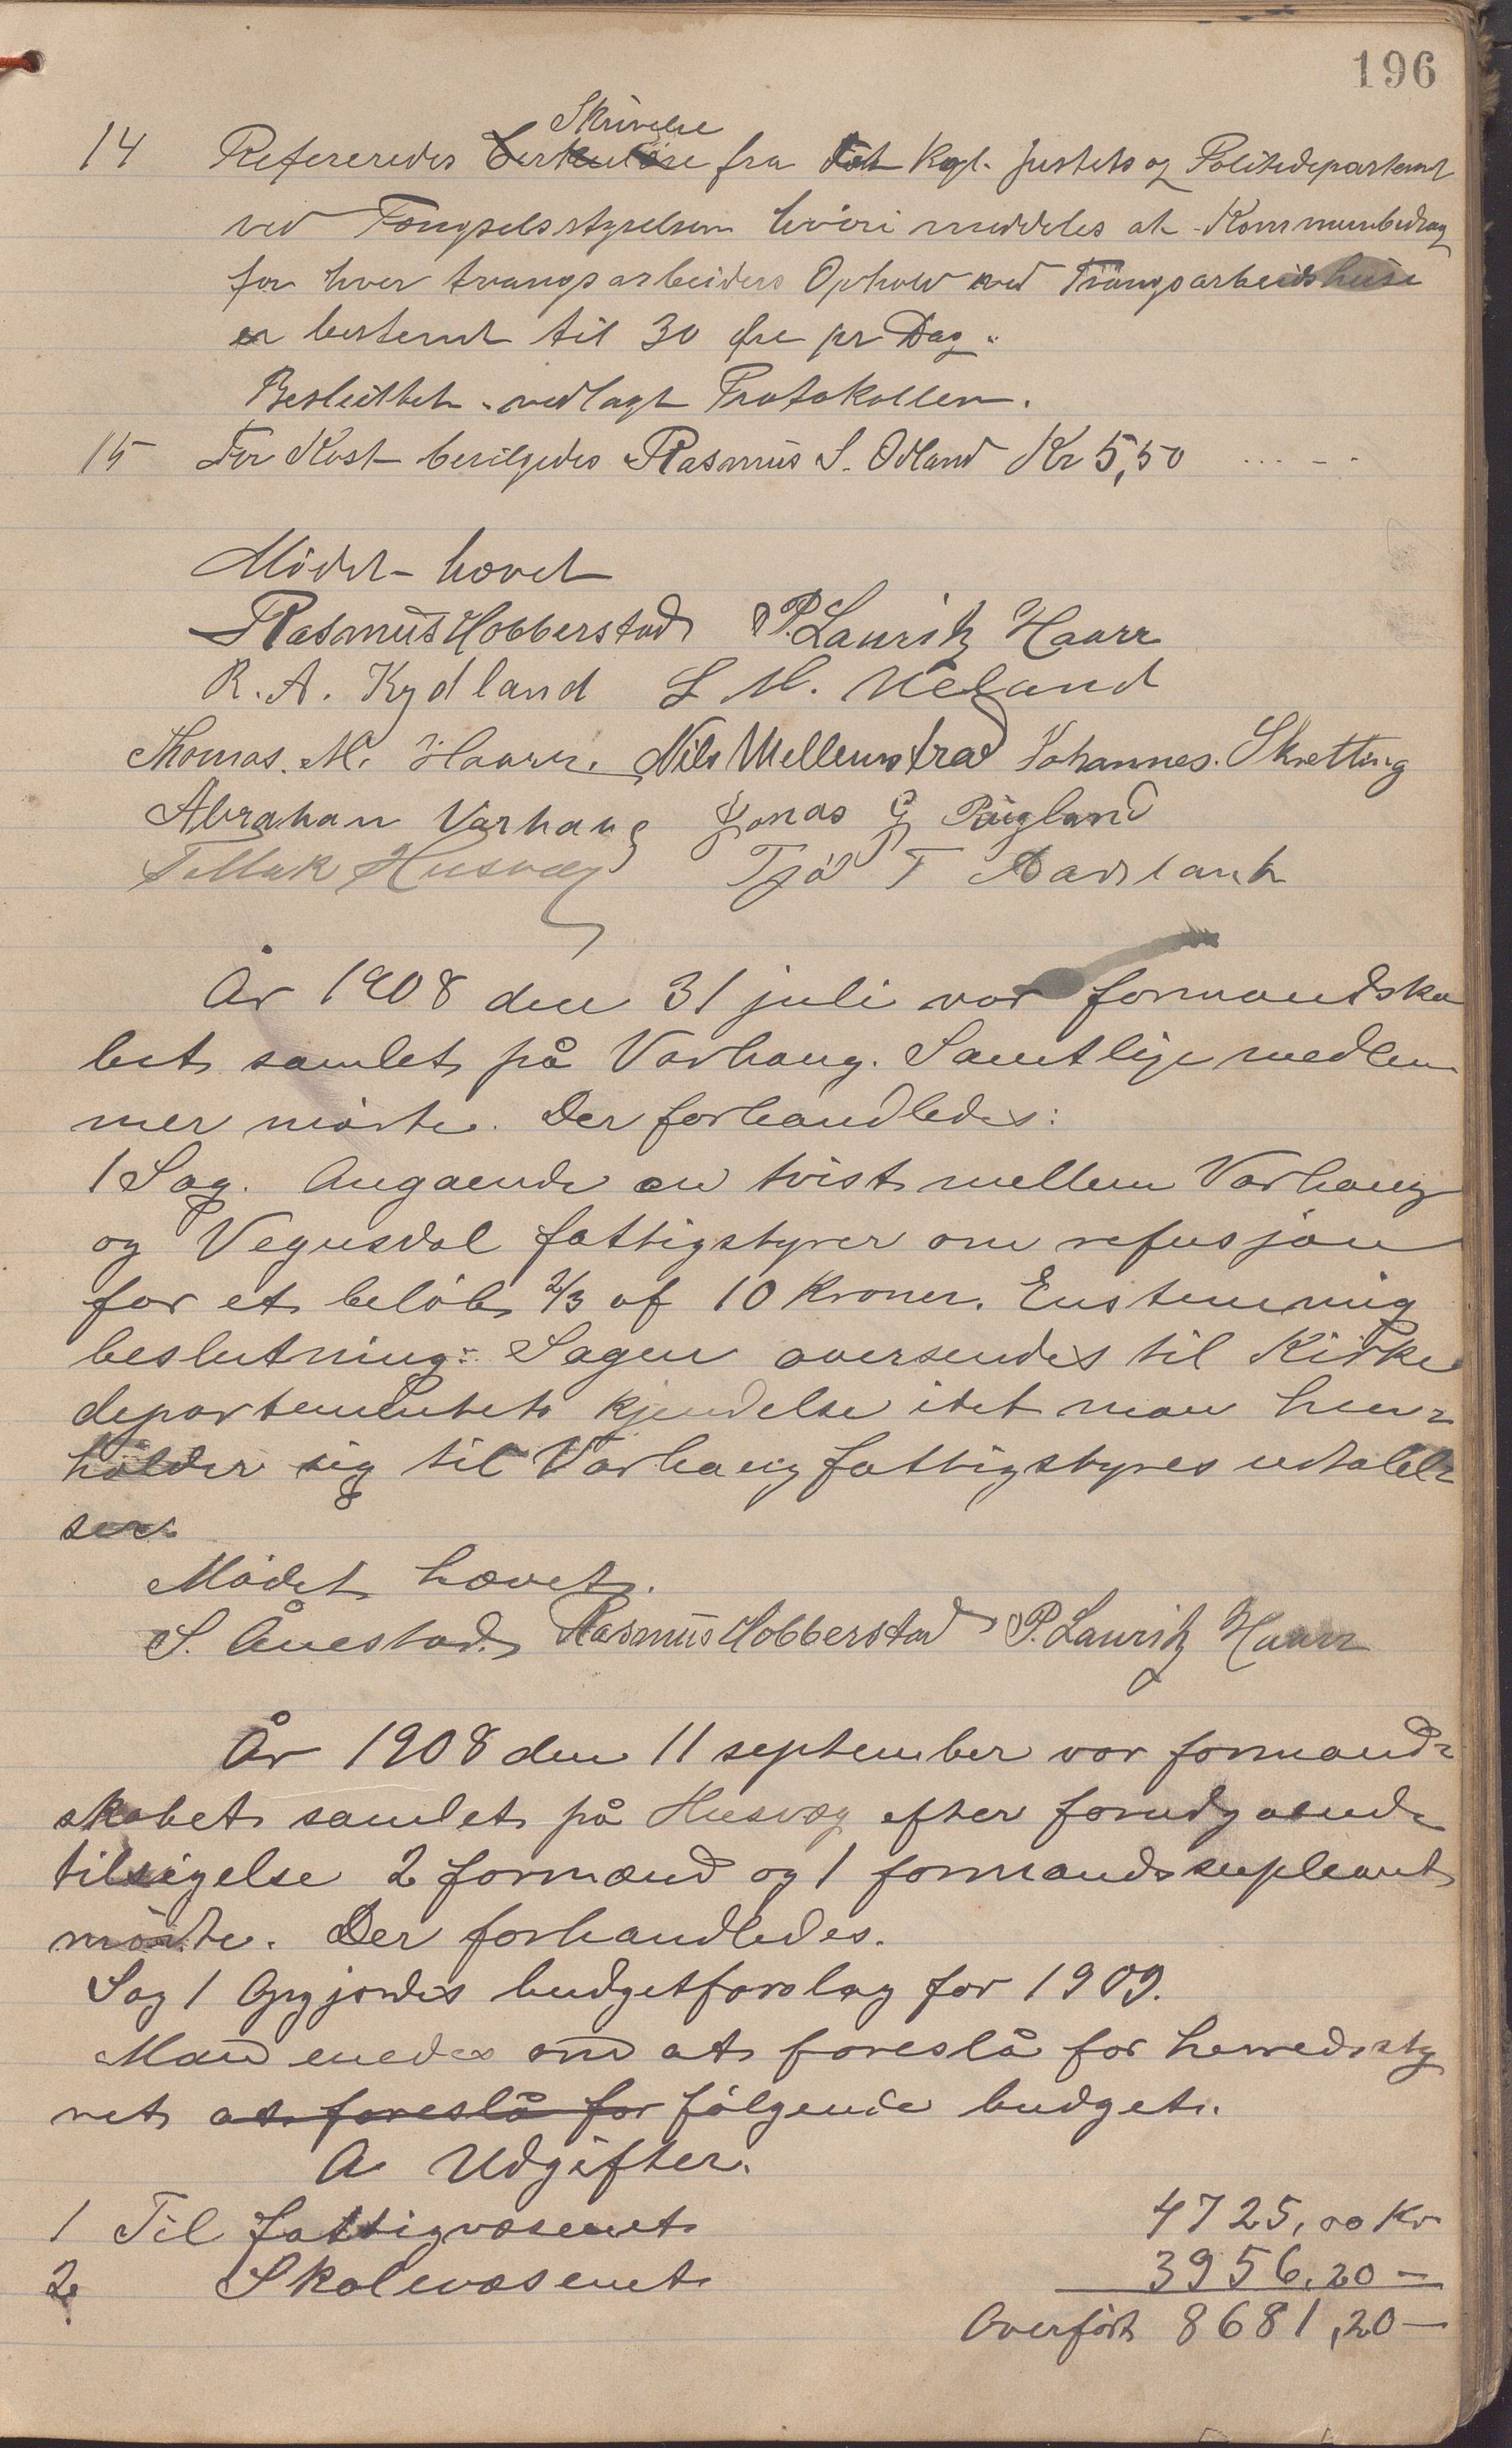 196
Skrivelse
14 Refereredes Cirkulære fra det Kgl. Justits og Politidepartemt
ved Fængselsstyrelsen hvori meddeles at Kommunebidrag
for hver tvangsarbeiders Ophold ved Tvangsarbeidshuse
er bestemt til 30 øre pr Dag.
Besluttet vedlagt Protokollen.
15 For Kost bevilgedes Rasmus S. Ødland Kr 5,50
Mödet hævet
Rasmus Hobberstad P. Lauritz Haarr
R. A. Kydland L M. Ueland
Thomas. M. Haarr. Nils Mellemstrad Johannes. Skretting
Abraham Varhaug Jonas G Rugland
Tollak Husvæg Tjöl T Aadland
År 1908 den 31 juli var formandska
bet samlet på Varhaug. Samtlige medlem
mer mödte. Der forhandledes:
1 Sag. Angaende en tvist mellem Varhaug
og Vegusdal fattigstyrer om refusjon
for et belöb 2/3 af 10 Kroner. Enstemmig
beslutning: Sagen oversendes til Kirke
departementets kjendelse idet man hen=
holder sig til Varhaug fattigstyres udtalel=
ser.
Mödet hævet.
S. Ånestad. Rasmus Hobberstad P. Lauritz Haarr
År 1908 den 11 september var formand=
skabet samlet på Husvæg efter forudgaende
tilsigelse 2 formænd og 1 formandssupleant
mödte. Der forhandledes.
Sag 1 Opgjordes budgetforslag for 1909.
Man enedes om at foreslå for herredsty
ret at foreslå for fölgende budget.
A Udgifter.
1 Til fattigvæsenet 4725,00 Kr
2 Skolevæsenet 3956,20 —
Overfört 8681,20 —